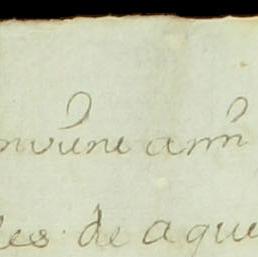 nviene a mi
les de aque